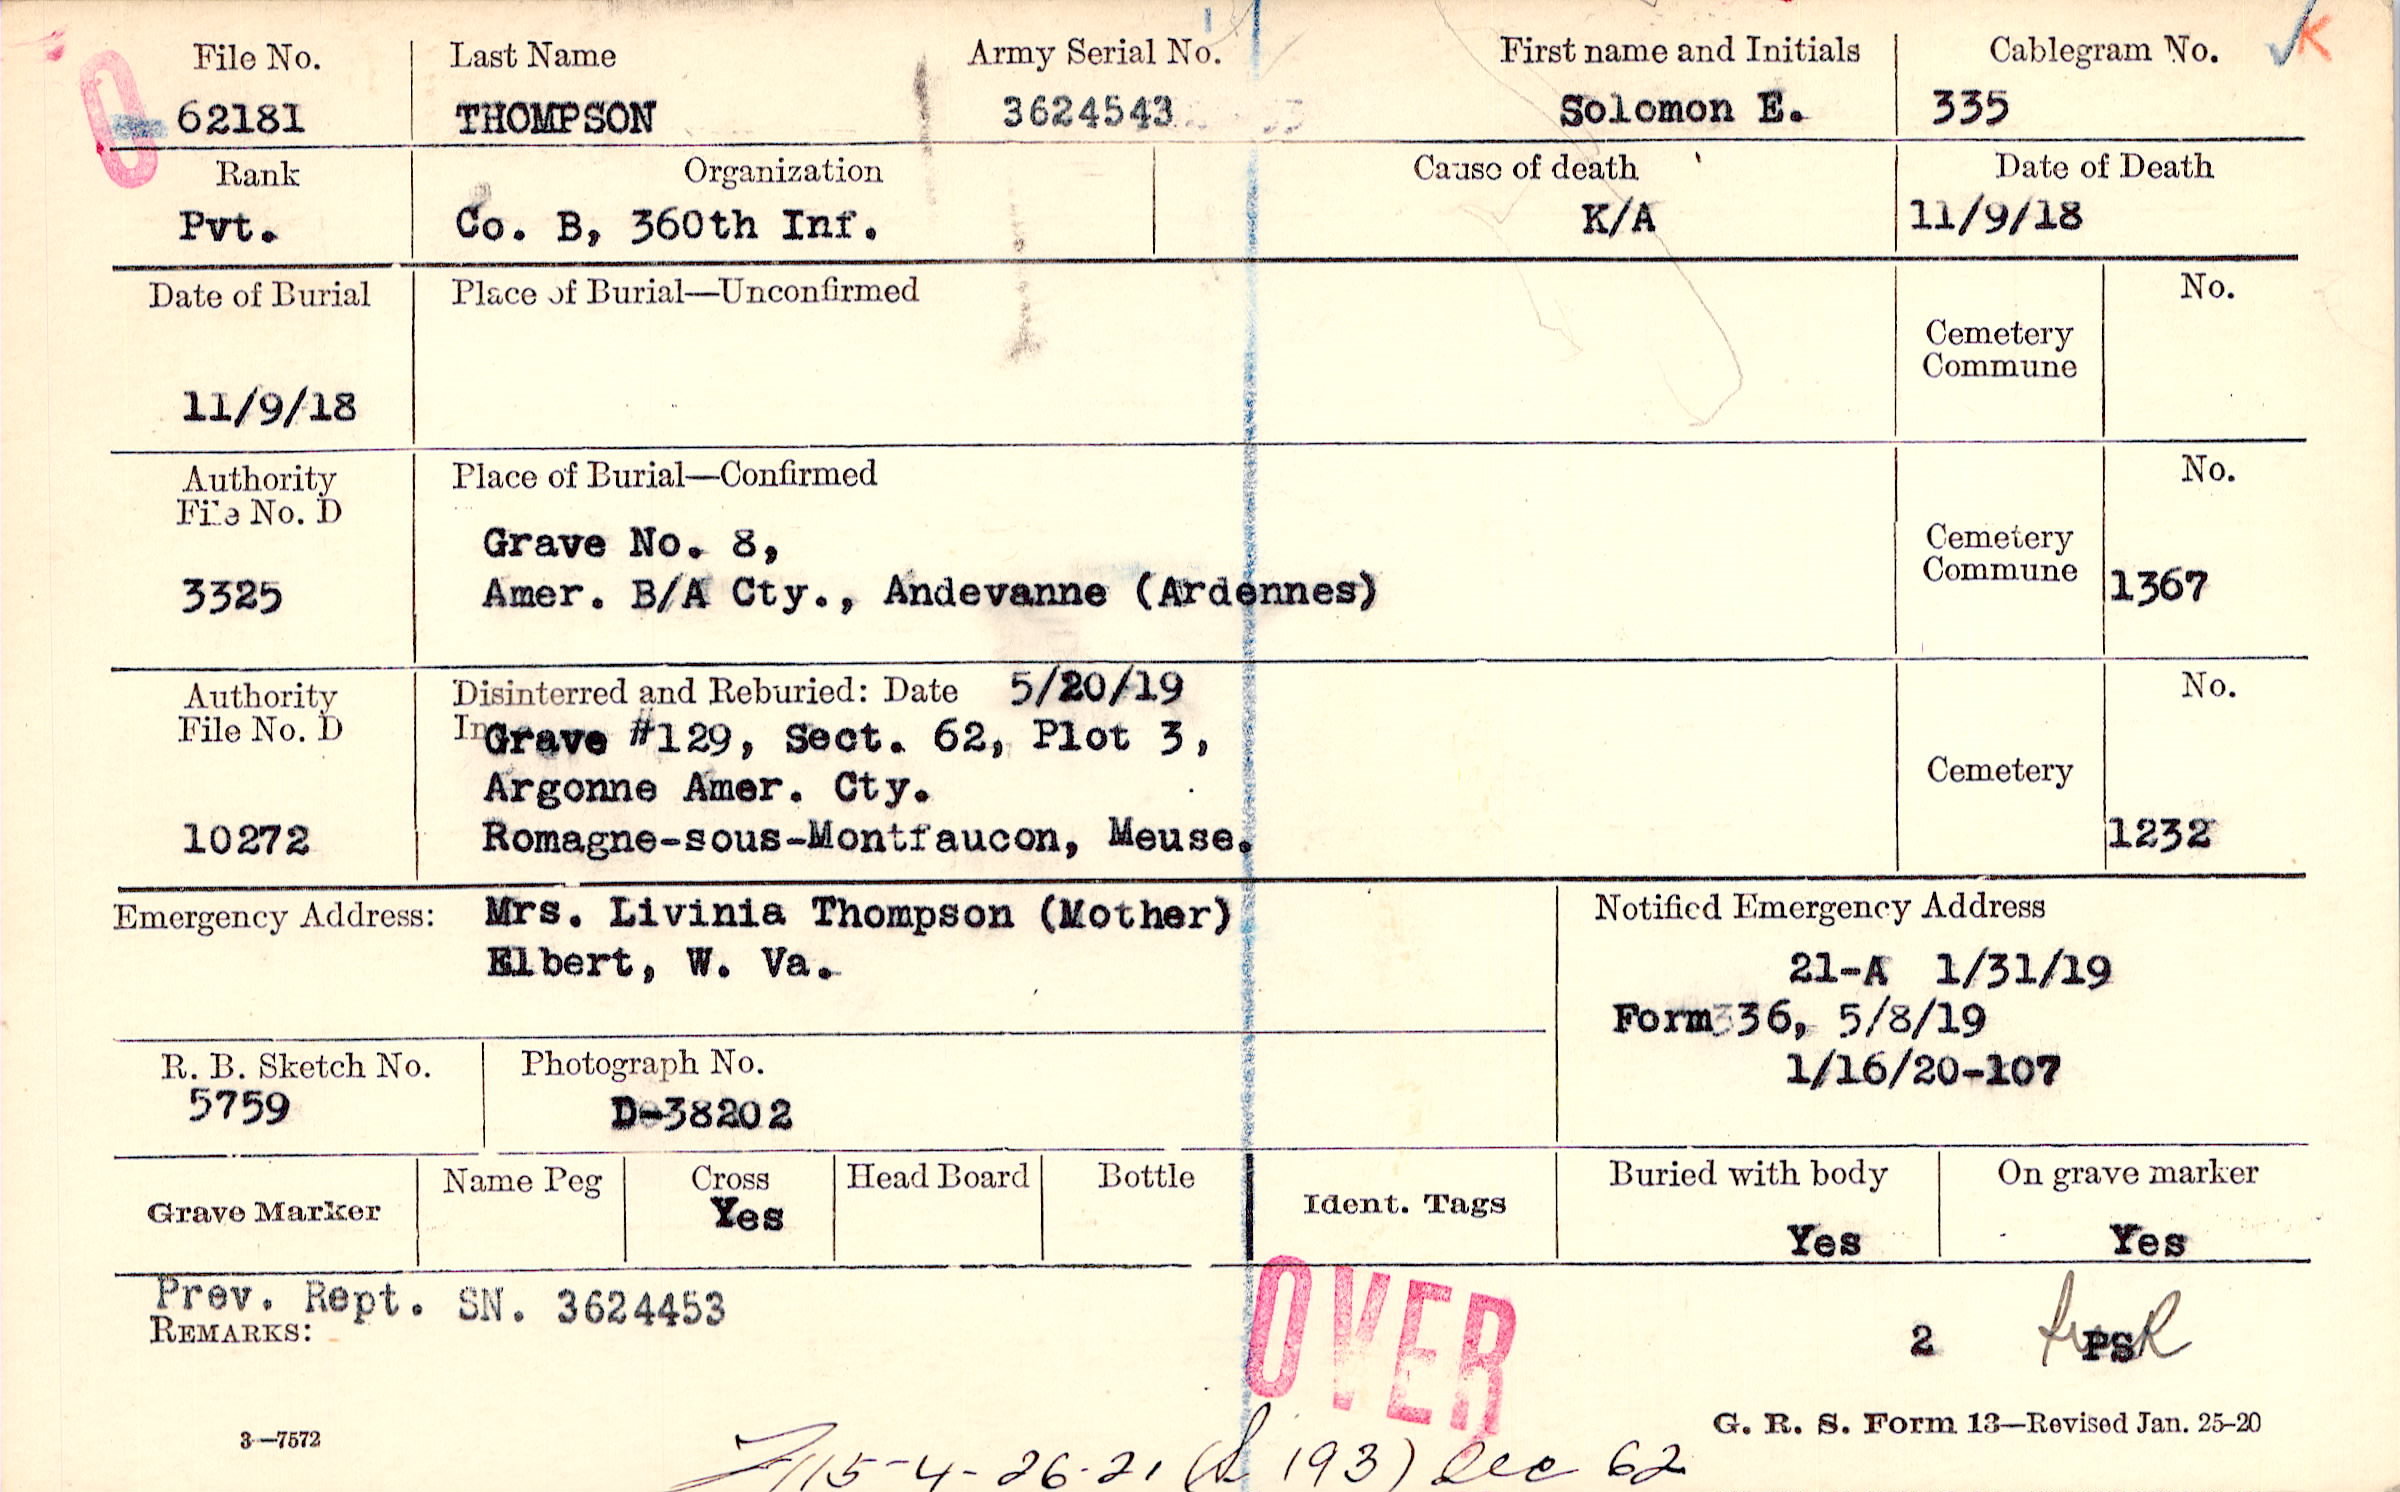 File No. Last Name Army Serial No. First name and Initials Cablegram No. K
62181 THOMPSON 3624543 Solomon E. 335
Rank Organization Cause of death Date of Death
Pvt. Co. B, 360th Inf. K/A 11/9/18
Date of Burial Place of Burial—Unconfirmed No.
Cemetery
Commune
11/9/18
Authority Place of Burial—Confirmed No.
File No. D
Grave No. 8, Cemetery
3325 Amer. B/A Cty., Andevanne (Ardennes) Commune 1367
Authority Disinterred and Reburied: Date 5/20/19 No.
File No. D In Grave #129, Sect. 62, Plot 3,
Argonne Amer. Cty. Cemetery
10272 Romagne-sous-Montfaucon, Meuse. 1232
Emergency Address: Mrs. Livinia Thompson (Mother) Notified Emergency Address
Elbert, W. Va. 21-A 1/31/19
Form 336, 5/8/19
R. B. Sketch No. Photograph No. 1/16/20-107
5759 D-38202
Grave Marker Name Peg Cross Head Board Bottle Ident. Tags Buried with body On grave marker
Yes Yes Yes
Prev. Rept. SN. 3624453
REMARKS: 2 PS
OVER
3—7572 G. R. S. Form 13—Revised Jan. 25-20
15-4-26-21 ( 193) Sec 62